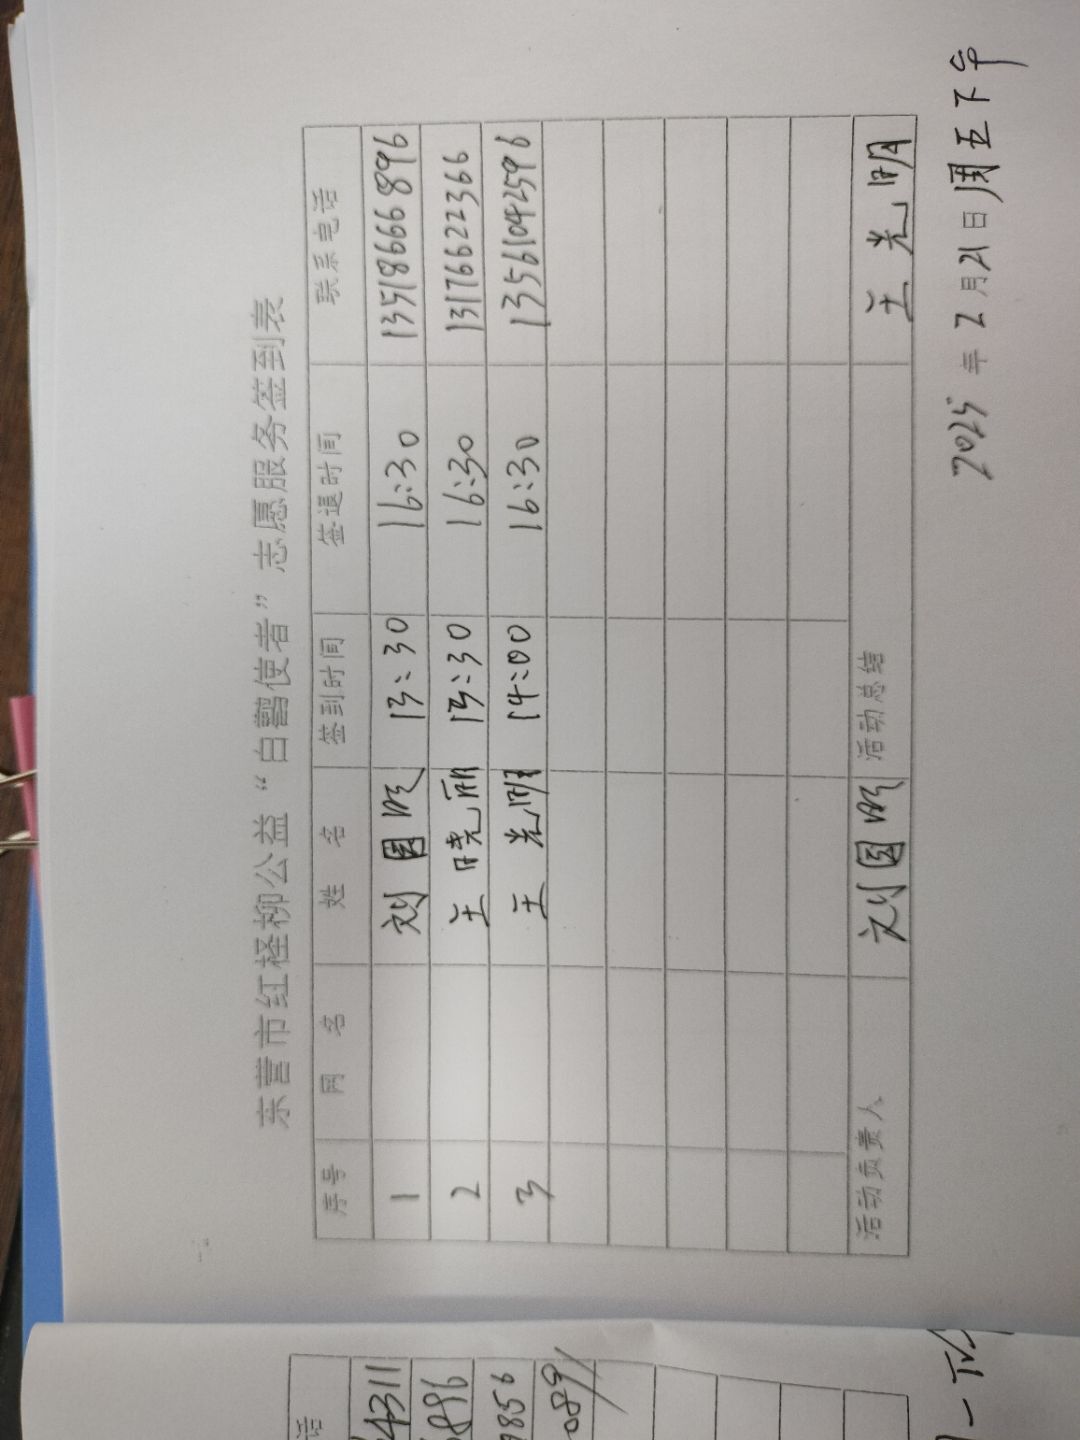 东营市红柽柳公益“白鹳使者”志愿服务签到表
序号 网名 姓名 签到时间 签退时间 联系电话
1 刘国 13:30 16:30 13518666896
2 王晓丽 13:30 16:30 13176622366
3 王光明 14:00 16:30 13561042596
活动负责人 刘国 活动总结 王光明
2025年2月21日周五下午
话
4311
6896
9856
089